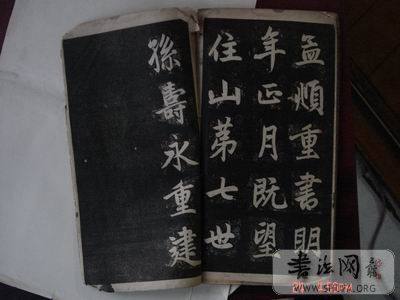 孟頫重書明
年正月既望
住山第七世
孫壽永重建
书法网
WWW.SHUFA.ORG